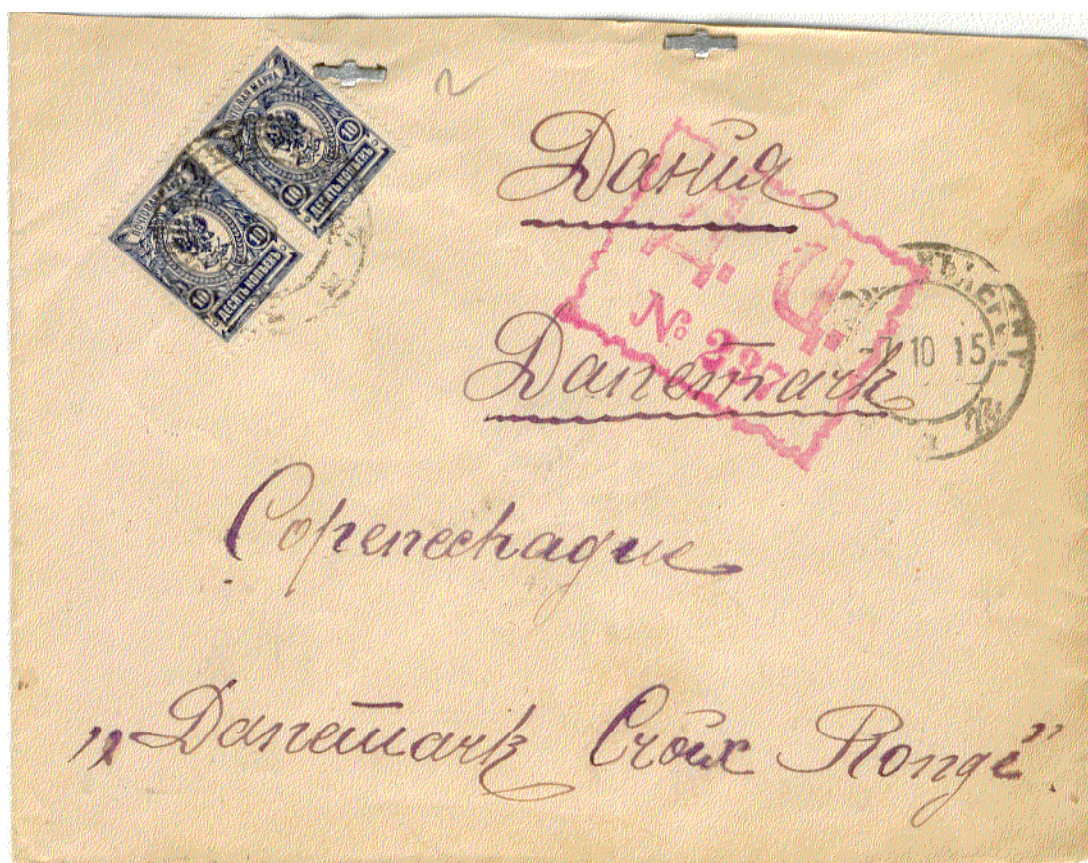 ПОЧТОВАЯ МАРКА
10
10
ДЕСЯТЬ КОПѢЕКЪ
10
10
ДЕСЯТЬ КОПѢЕКЪ
Данія
Д. Ц.
№ 237
-7 10 15
Danemark
Copenechague
„Danemark Croix Ronge”.